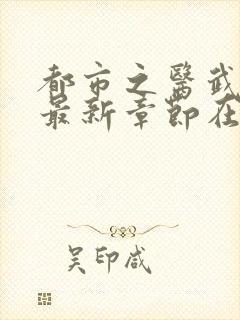 都市之醫武
最新章節在
吴印咸